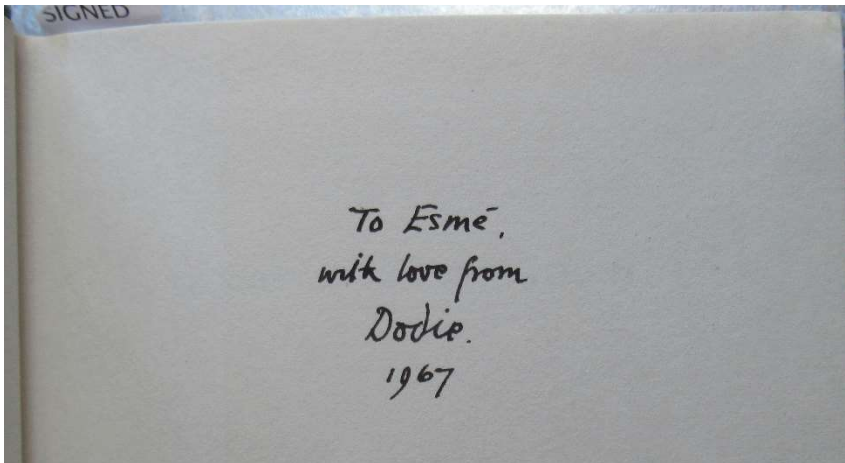 SIGNED
To Esmé,
with love from
Dodie.
1967